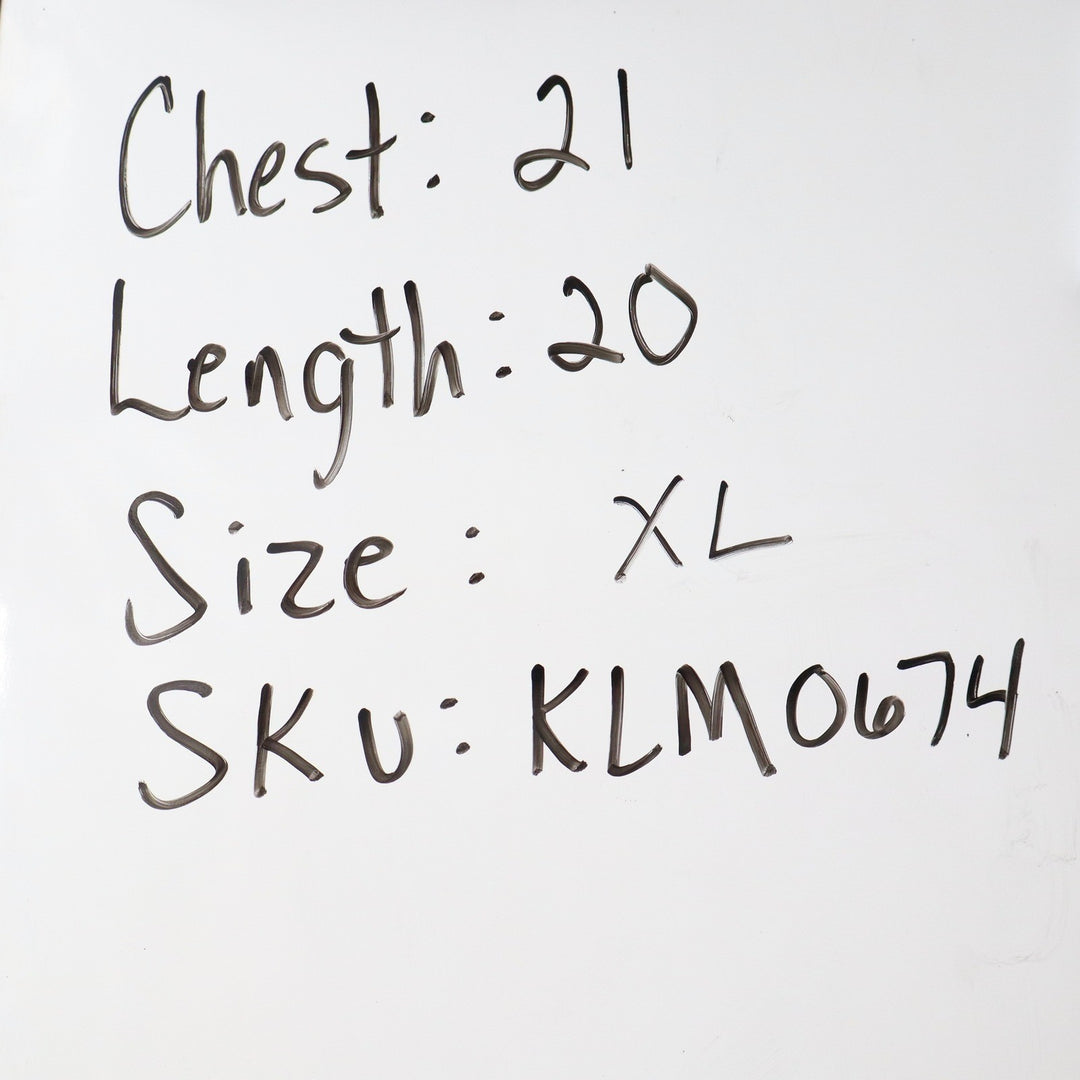 Chest: 21
Length: 20
Size: XL
SKU: KLM0674